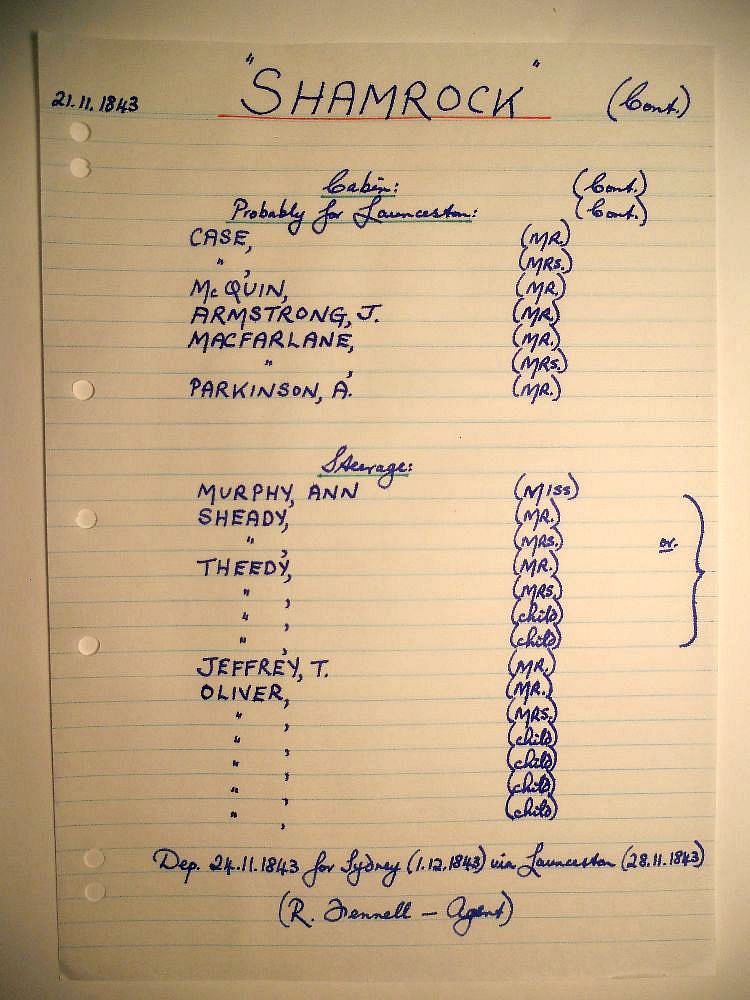 21.11.1843 "SHAMROCK" (Cont.)
Cabin: (Cont.)
Probably for Launceston: (Cont.)
CASE, (MR.)
" , (MRS.)
McQUIN, (MR.)
ARMSTRONG, J. (MR.)
MACFARLANE, (MR.)
" , (MRS.)
PARKINSON, A. (MR.)
Steerage:
MURPHY, ANN (MISS)
SHEADY, (MR.)
" , (MRS.) or.
THEEDY, (MR.)
" , (MRS.)
" , (child)
" , (child)
JEFFREY, T. (MR.)
OLIVER, (MR.)
" , (MRS.)
" , (child)
" , (child)
" , (child)
" , (child)
Dep. 24.11.1843 for Sydney (1.12.1843) via Launceston (28.11.1843)
(R. Fennell – Agent)